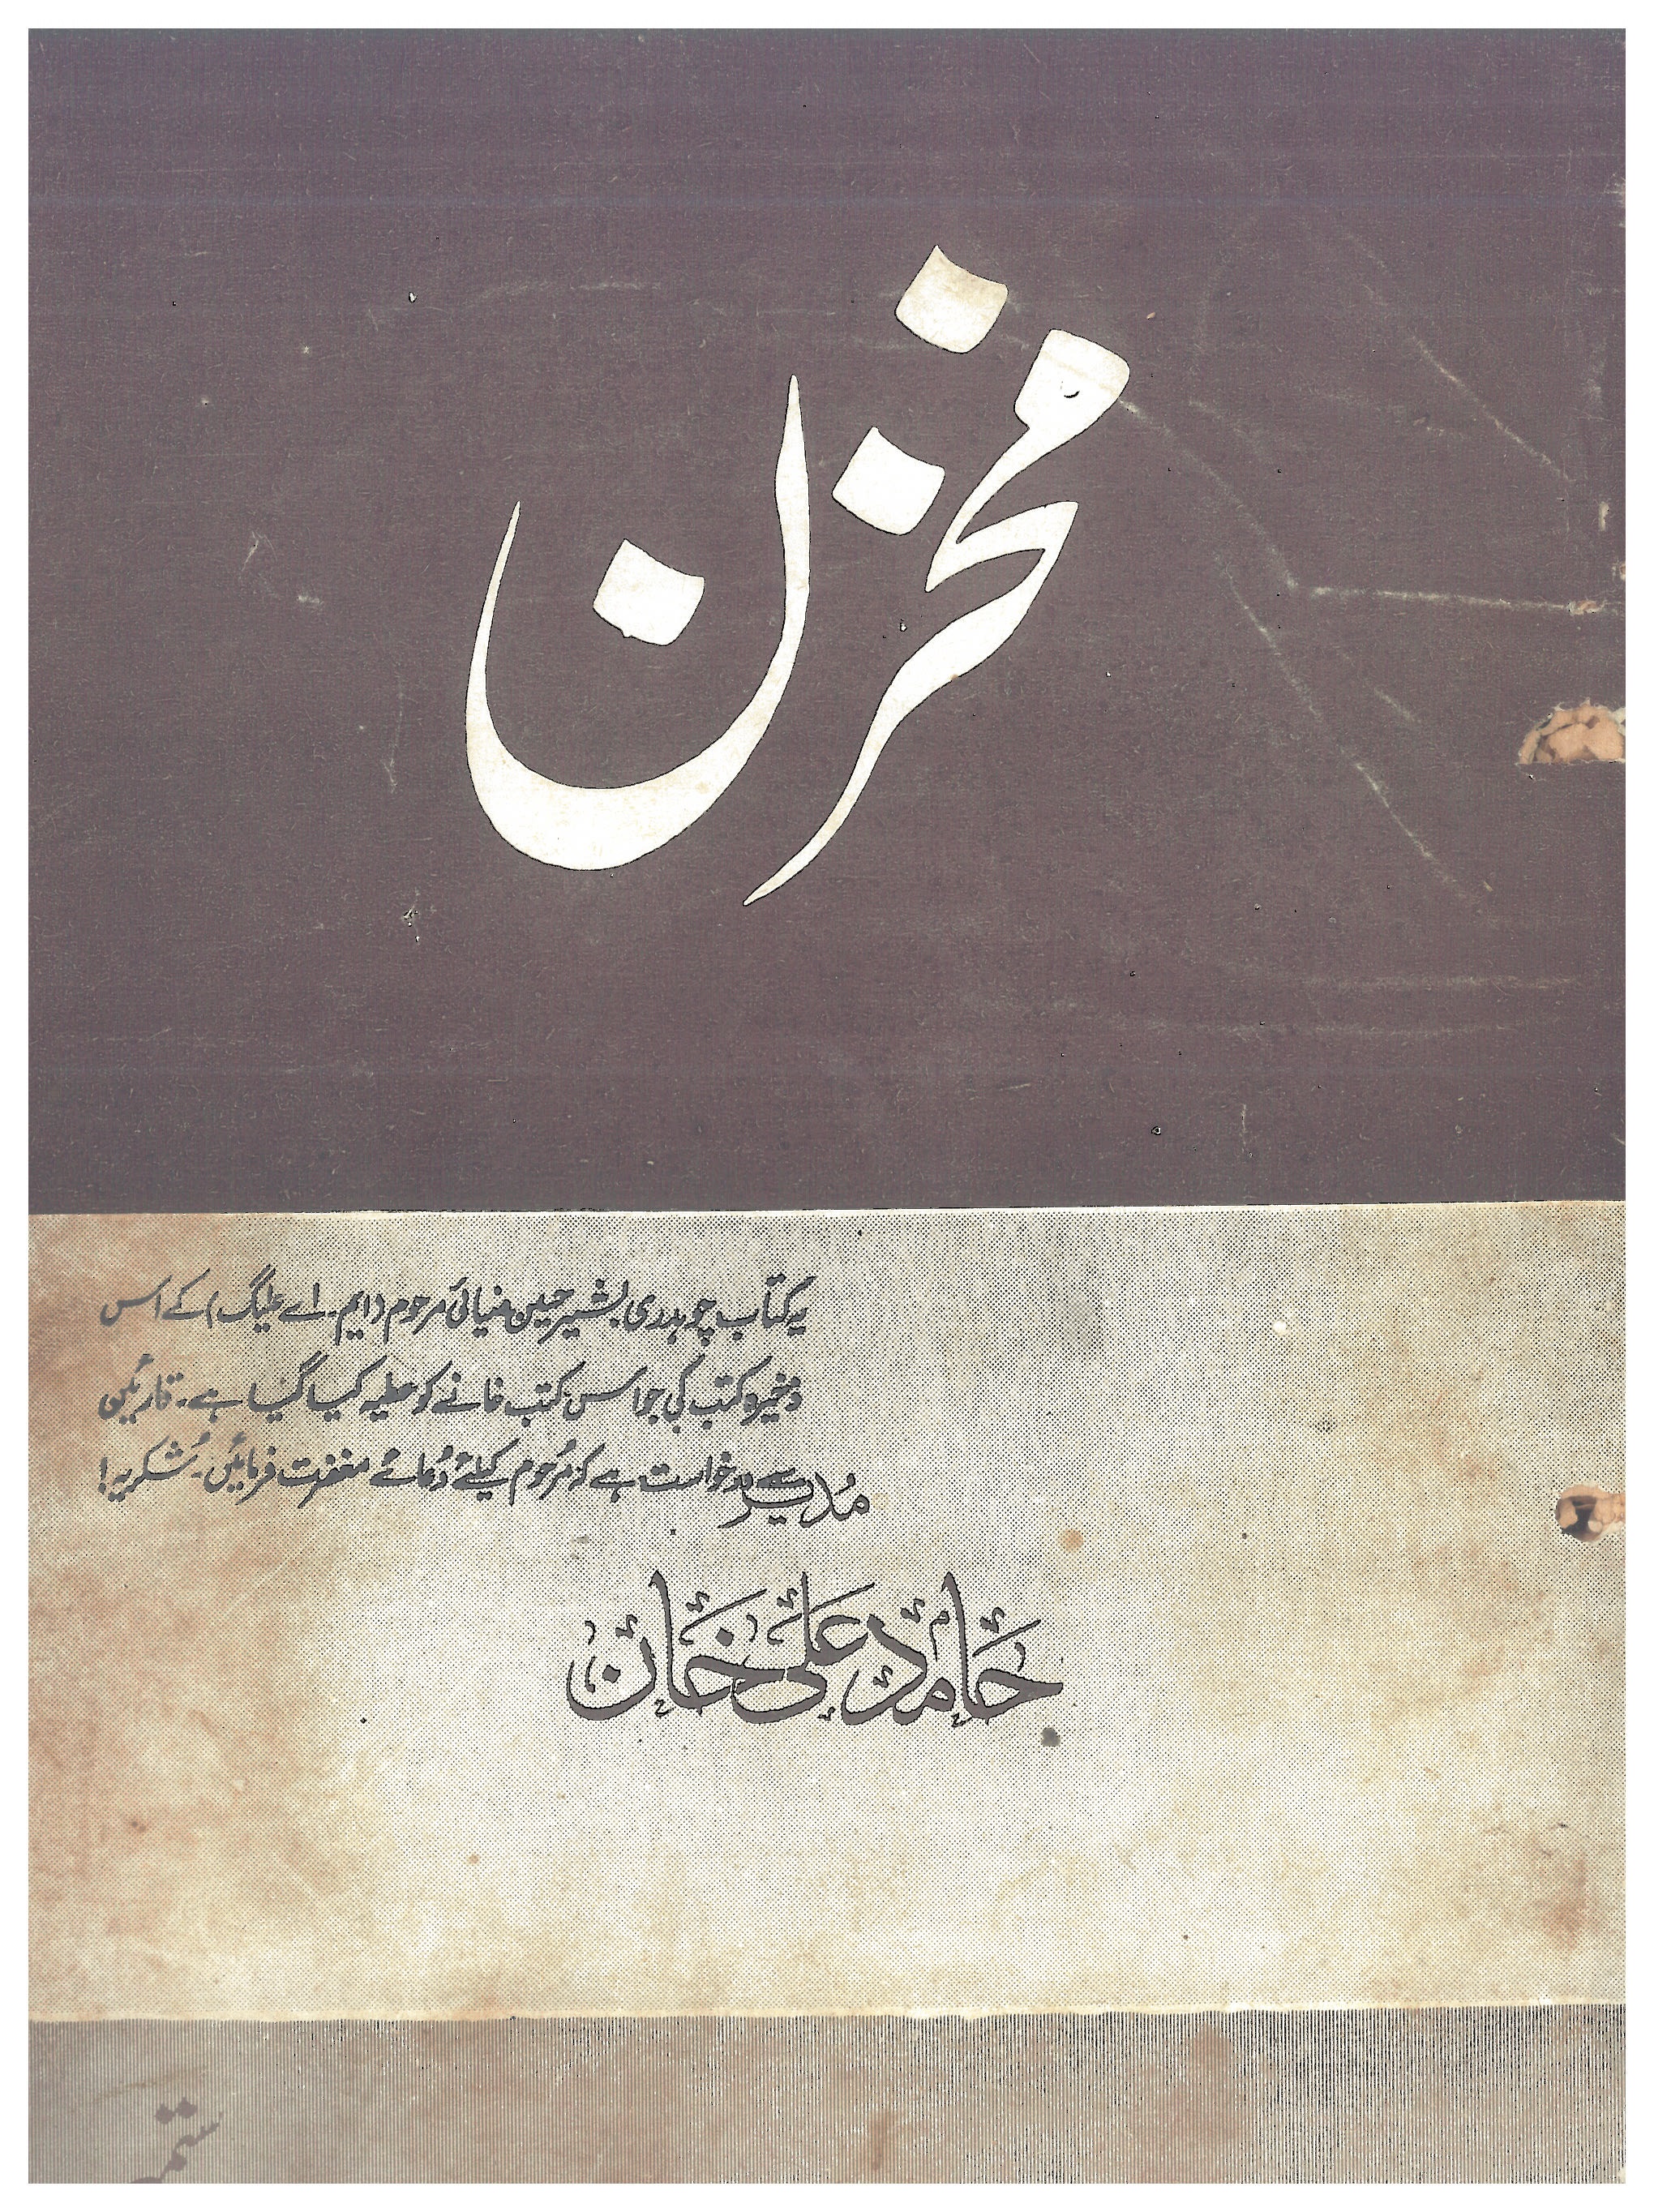 مخزن
یہ کتاب چوہدری بشیر حسین ضیائی مرحوم (ایم۔اے علیگ) کے اس
ذخیرہ کتب کی جو اس کتب خانے کو عطیہ کیا گیا ہے۔ قارئین
سے درخواست ہے کہ مرحوم کیلئے دُعائے مغفرت فرمائیں۔ شکریہ!
مُدیر
حَامد عَلی خَان